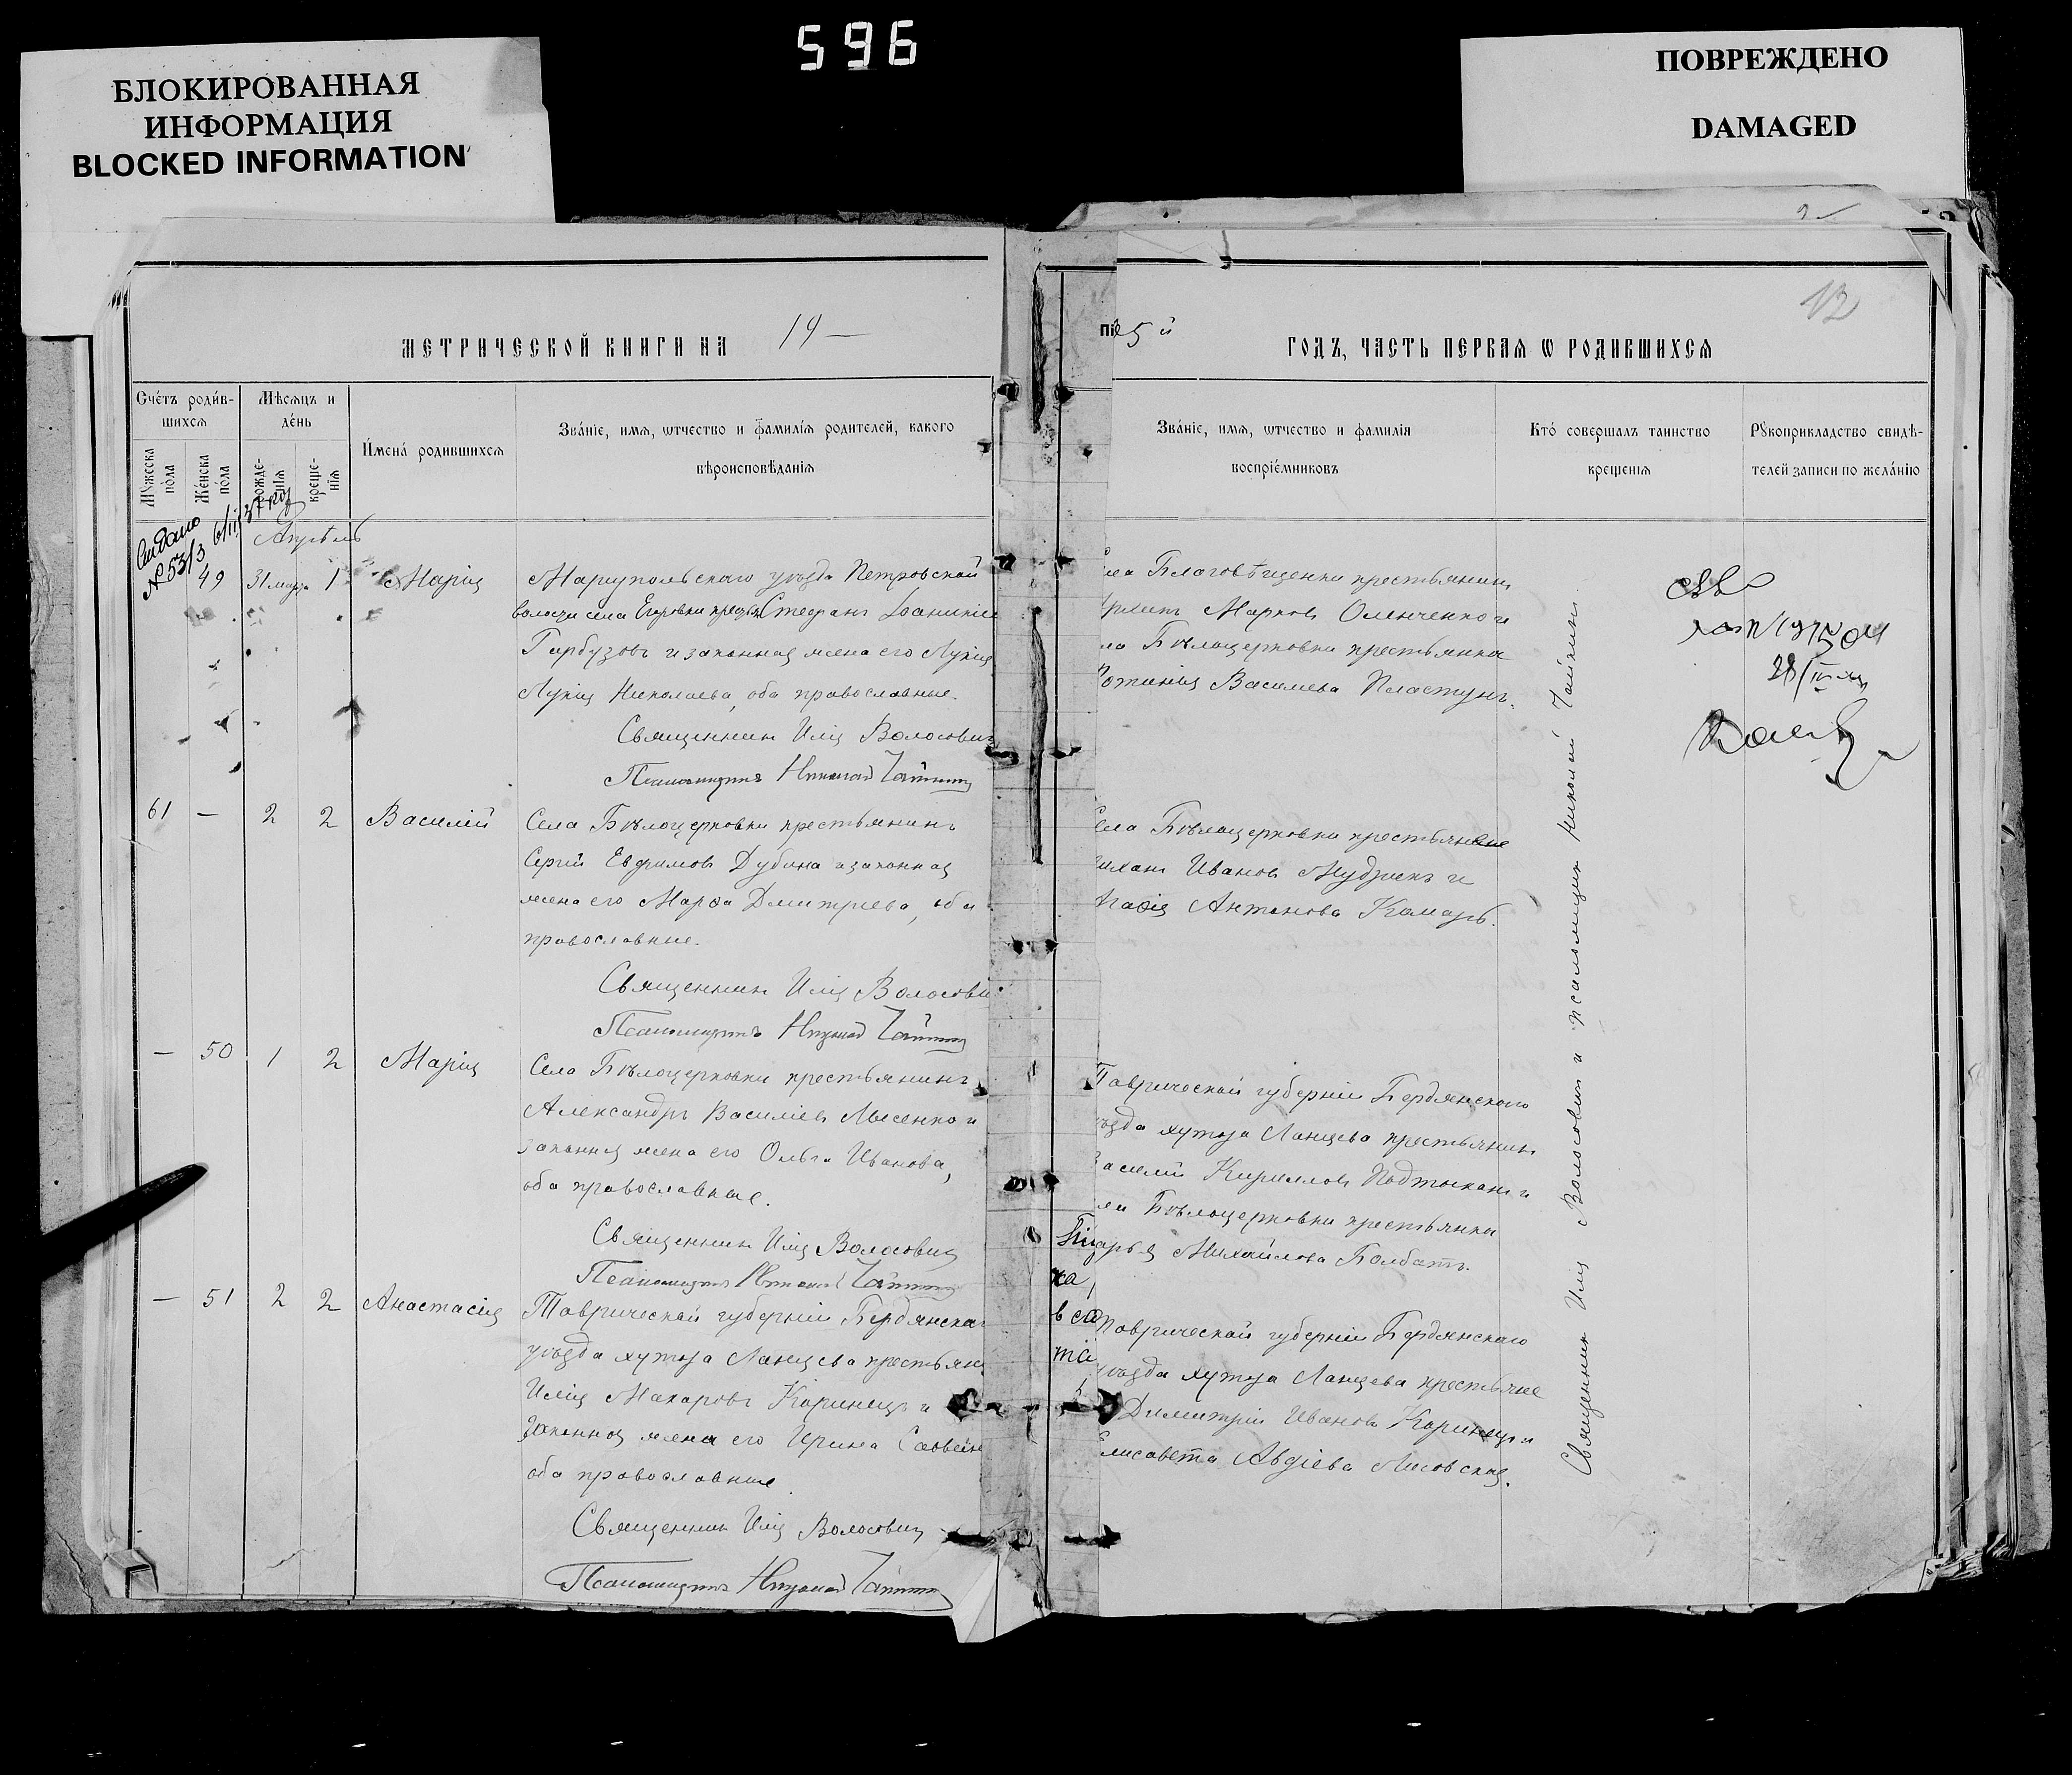 БЛОКИРОВАННАЯ
ИНФОРМАЦИЯ
BLOCKED INFORMATION
596
ПОВРЕЖДЕНО
DAMAGED
13
МЕТРИЧЕСКОЙ КНИГИ НА 19—
5й ГОДЪ, ЧАСТЬ ПЕРВАЯ Ѡ РОДИВШИХСЯ
Счетъ родив-
шихся
Мужеска
пола
Женска
пола
Мѣсяцъ и
день
рожде-
нія
креще-
нія
Имена родившихся
Званіе, имя, ѡтчество и фамилія родителей, какого
вѣроисповѣданія
Званіе, имя, ѡтчество и фамилія
воспріемниковъ
Кто совершалъ таинство
крещенія
Рукоприкладство свидѣ-
телей записи по желанію
Апрѣль
49 31 марта 1 Марія
Маріупольскаго уѣзда Петровской
волости села Егоровки Стефанъ Іоаникіе
Гарбузовъ и законная жена его Лукія
Лукія Николаева, оба православные.
Священникъ Илія Волосовичъ
Псаломщикъ Николай
ела Благовѣщенки крестьянинъ
Марковъ Оленченко и
ла Бѣлоцерковки крестьянка
Фотинія Васильева Пластунъ.
61 — 2 2 Василій
Села Бѣлоцерковки крестьянинъ
Сергій Евфимовъ Дубина и законная
жена его Марѳа Дмитріева, оба
православные.
Священникъ Илія Волосови
Псаломщикъ Николай
ела Бѣлоцерковки крестьяне
ихаилъ Ивановъ Мудрикъ и
Агаѳія Антонова Комаръ.
— 50 1 2 Марія
Села Бѣлоцерковки крестьянинъ
Александръ Василіевъ Лысенко и
законная жена его Ольга Иванова,
оба православные.
Священникъ Илія Волосовичъ
Псаломщикъ Николай
Таврической губерніи Бердянскаго
уѣзда хутора Ланцева крестьянинъ
Василій Кирилловъ и
ла Бѣлоцерковки крестьянка
арья Михайлова Болбатъ.
— 51 2 2 Анастасія
Таврической губерніи Бердянска
уѣзда хутора Ланцева крестьян
Илія Макаровъ Коринецъ и
законная жена его Ирина Савеин
оба православные.
Священникъ Илія Волосовичъ
Псаломщикъ Николай
Таврической губерніи Бердянскаго
уѣзда хутора Ланцева крестьяне
Димитрій Ивановъ Коринецъ и
Елисавета Авдіева Лисовская.
Священникъ Илія Волосовичъ и псаломщикъ Николай